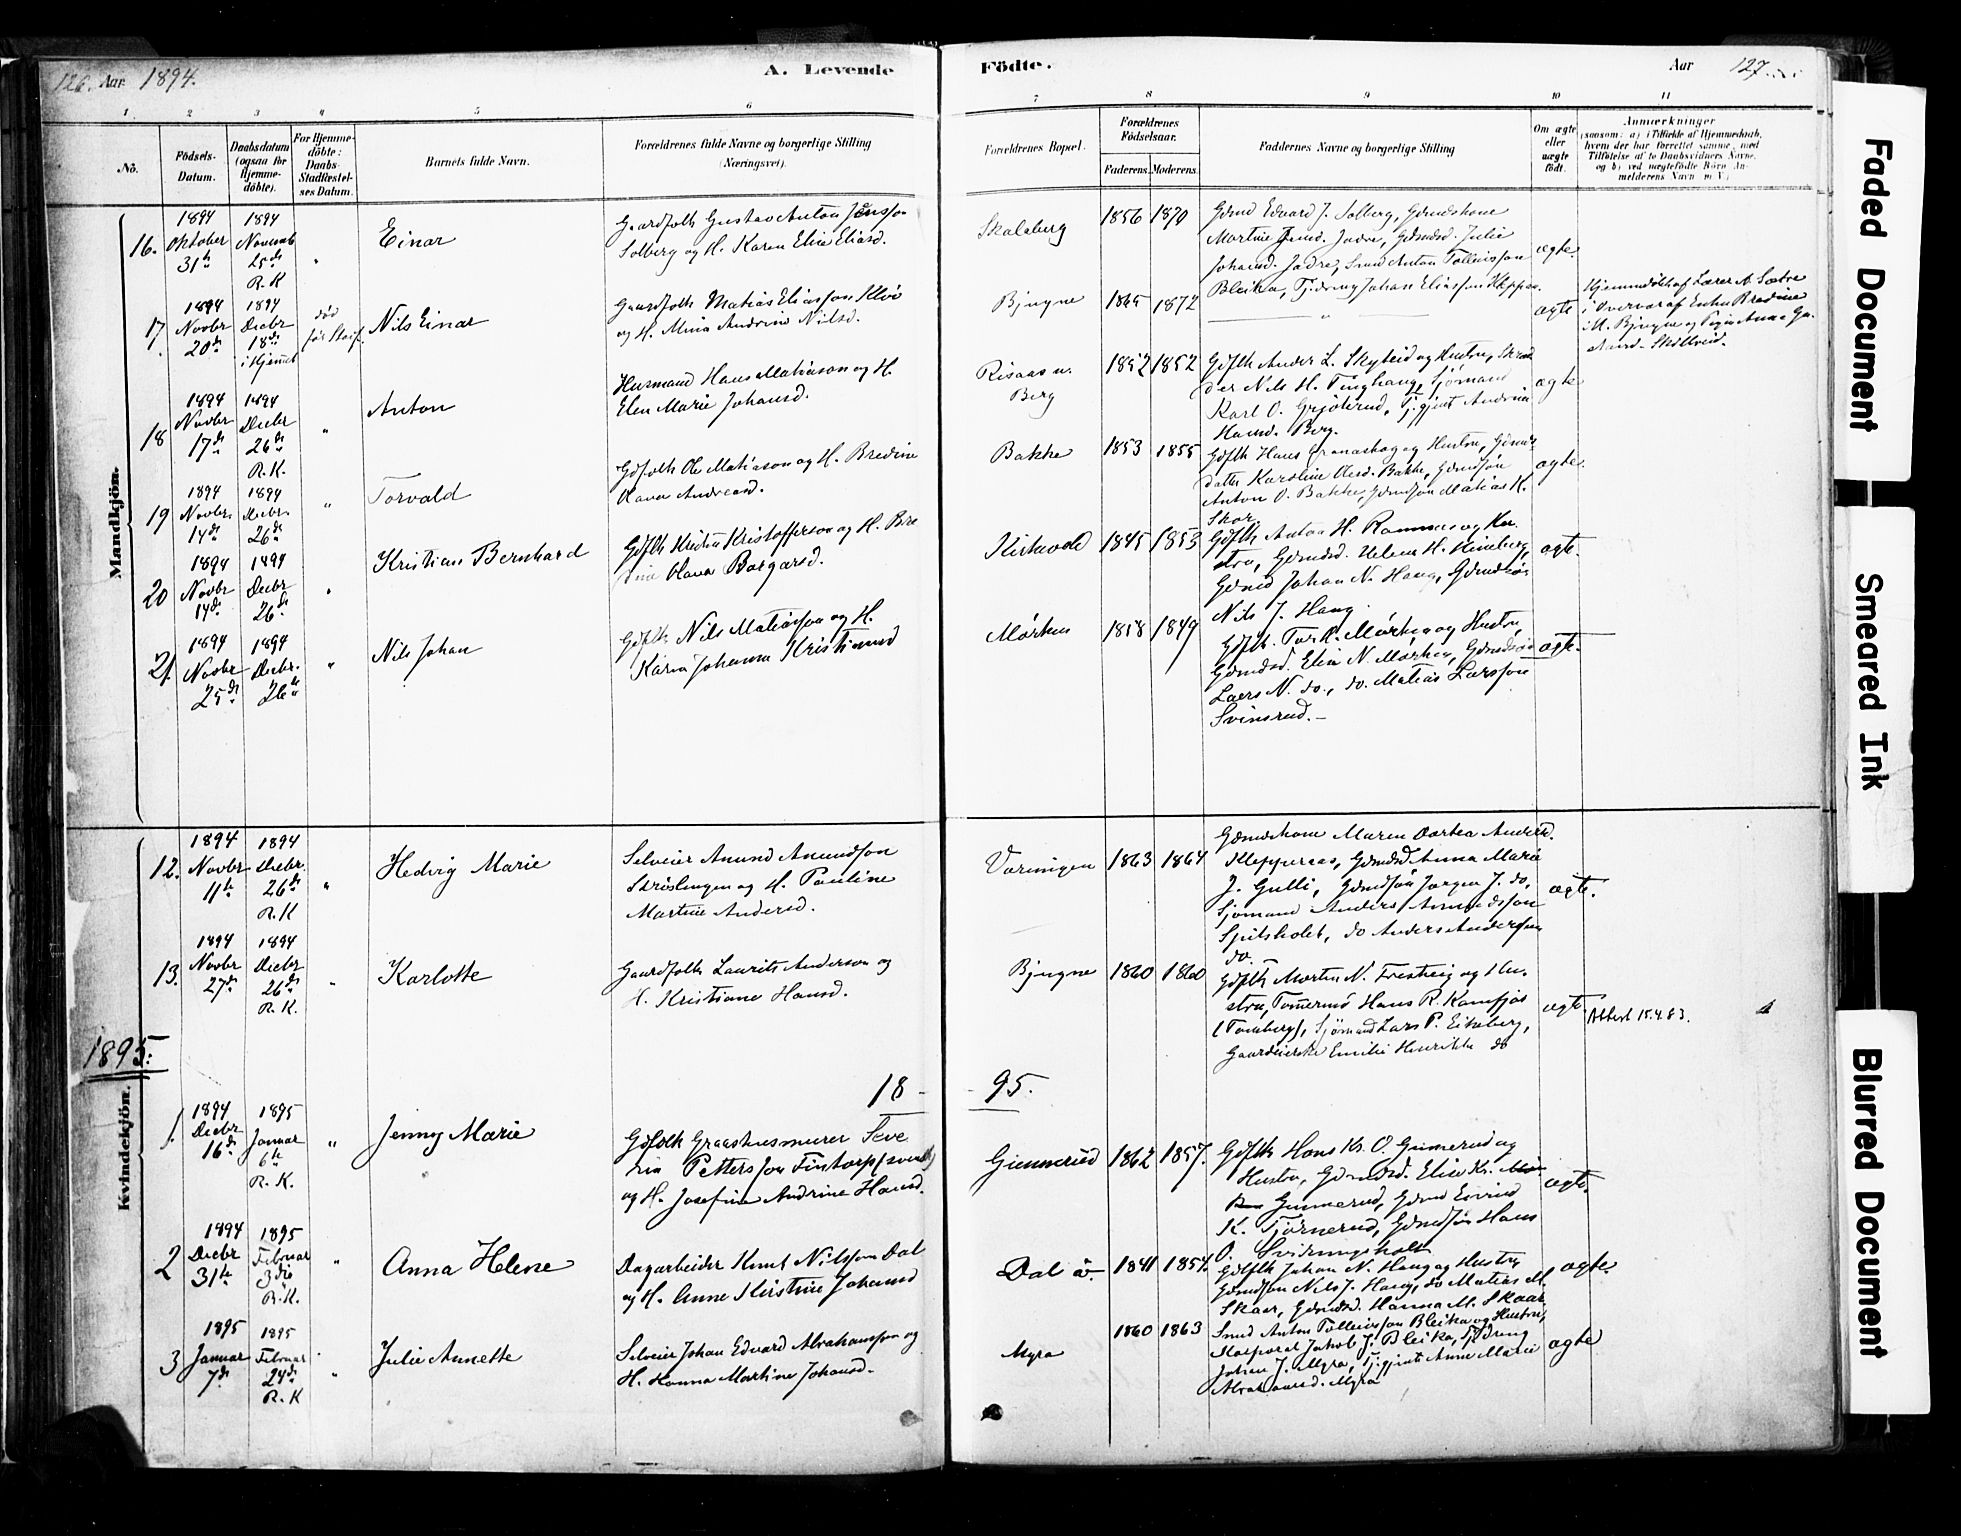 126. Aar 1894.
A. Levende
Födte.
Aar 127.
1 2 3 4 5 6 7 8 9 10 11
No.
Födsels-
Datum.
Daabsdatum
(ogsaa for
hjemme-
döbte).
For Hjemme-
döbte:
Daabs-
Stadfæstel-
ses Datum.
Barnets fulde Navn.
Forældrenes fulde Navne og borgerlige Stilling
(Næringsvei).
Forældrenes Bopæl.
Forældrenes
Födselsaar.
Faderens. Moderens.
Faddernes Navne og borgerlige Stilling
Om ægte
eller
uægte
født.
Anmærkninger
(saasom: a) i Tilfælde af Hjemmedaab,
hvem der har forrettet samme, med
Tilföielse af to Daabsvidners Navne,
og b) ved uægtefödte Börn An-
melderens Navn m. V.)
Mandkjön.
16.
1894
Oktober
31te
1894
Novemb
25de
R. K
"
Einar
Gaardfolk Gustav Anton Jensson
Solberg og H. Karen Elise Eliasd.
Skaleberg
1856 1870
Gdmd Edvard J. Solberg, Gdmdskone
Martine Jadre, Gdmdsd. Julie
Johansd. Jadre, Smd Anton Tollinsson
Bleika, Tj.dreng Johan Eliassøn Kleppen.
ægte.
17.
1894
Novbr
20de
1894
Decbr
18de
i Hjemmet
død
før Stadf.
Nils Einar
Gaardfolk Matias Eliassøn Klev
og H. Mina Andrine Nilsd.
Bjugne
1865 1872
"
ægte
Hjemmedøbt af Lærer A. Sætre
i Overvær af Enke Bredine
M. Bjugne og Pige Anna
18
1894
Novbr
17de
1894
Decbr
26de
R. K.
"
Anton
Husmand Hans Matiason og H.
Elen Marie Johansd.
Risaas u.
Berg
1852 1852
Gdflk Ander L. Skyteid og Hustru, Skræd
der Nils H. Tinghaug, Sjømand
Karl O. Grjøterud, Tj.gjent Andrine
Hansd. Berg.
ægte
19
1894
Novbr.
14de
1894
Decbr.
26de
"
Torvald
Gdfolk Ole Matiason og H. Bredine
Olava Andreasd.
Bakke
1853 1855
Gdflk Hans Granaskog og Hustru, Gdmds-
datter Karoline Olesd. Bakke, Gdmdsøn
Anton O. Bakke, Gdmdsøn Matias H.
Skor.
ægte.
20
1894
Novbr
14de
1894
Decbr
26de
"
Kristian Bernhard
Gdflk Kristian Kristofferson og H. Bre
dine Olava Borgarsd.
Kirkevold
1845 1853
Gdflk Anton H. Rammes og Hu-
stru, Gdmdsd. Helene H. Hineberg,
Gdmd Johan N. Haug, Gdmdsøn
Nils J. Haug.
ægte.
21.
1894
Novbr
25de
1894
Decbr.
26de
"
Nils Johan
Gdflk Nils Matiassøn og H.
Karen Johanna Kristiansd
Mørken
1858 1849
Gdflk. Tor K. Mørken og Hustru,
Gdmdsd. Elise N. Mørken, Gdmdsøn
Laers N. do., do. Matias Larssøn
Svinsrud. –
ægte.
Kvindekjön.
12.
1894
Novbr
11te
1894
Decbr.
26de
R. K
"
Hedvig Marie
Selveier Amund Amundson
Skrøslingen og H. Pauline
Martine Andersd.
Væringen
1863 1864
Gdmdskone Maren Dortea Andersd.
Kleppenaas, Gdmdsd. Anna Marie
J. Gulli, Gdmdsøn Jørgen J. do,
Sjømand Anders Amundssøn
Spitsholet, do Anders Anderssøn
do. –
ægte.
13.
1894
Novbr
27de
1894
Decbr
26de
R. K.
"
Karlotte
Gaardfolk Laurits Anderson og
H. Kristiane Hansd.
Bjugne
1860 1860
Gdflk Morten N. Frestvig og Hu-
stru, Tømermd Hans R. Kamfjos
(Tomberg), Sjømand Lars P. Eikeberg,
Gaardeierske Emilie Henrikke do
ægte.
Attest 15.4.83.
1895:
18 – – 95.
1.
1894
Decbr
16de
1895
Januar
6te
R. K.
"
Jenny Marie
Gdfolk Graastensmurer Seve
rin Petterssøn Fintorp (svensk)
og H. Josefine Andrine Hansd.
Gunnerud
1862 1857.
Gdflk Hans Kr. O. Gunnerud og
Hustru, Gdmdsd. Elise Kr.
Gunnerud, Gdmd Eivind
K. Tjørnerud, Gdmdsøn Hans
O. Svinningsholt
ægte.
2
1894
Decbr
31te
1895
Februar
3die
R. K.
"
Anna Helene
Dagarbeider Knut Nilssøn Dal
og H. Anne Kirstine Johansd
Dal ö.
1841 1852
Gdflk Johan N. Haug og Hustru,
Gdmdsøn Nils J. Haug, do Matias M.
Skaar, Gdmdsd. Hanna M. Skaar,
ægte.
3
1895
Januar
7de
1895
Februar
24de
R. K
"
Julie Annette
Selveier Johan Edvard Abrahamssøn og
H. Hanna Martine Johansd.
Myra
1860 1863
Smd Anton Tollinssøn Bleika og Hustru,
Korporal Jakob J. Bleika, Tj.dreng
Johan J. Myra, Tj.gjente Anne Marie
Abrahamsd. Myra
ægte
Faded Document
Smeared Ink
Blurred Document